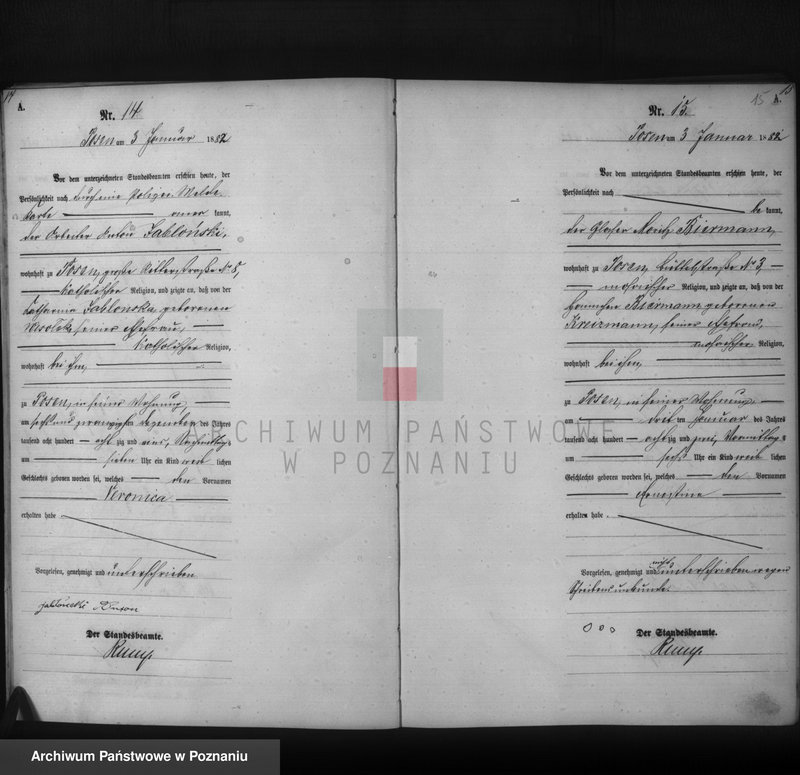 14
A.
Nr. 14
Posen am 3 Januar 1882
Vor dem unterzeichneten Standesbeamten erschien heute, der
Persönlichkeit nach durch eine Polizei Melde
karte kannt,
der Arbeiter Anton Jabłoński,
wohnhaft zu Posen, große Ritterstraße No 8,
katholischer Religion, und zeigte an, daß von der
Katharina Jablonska geborenen
seiner Ehefrau,
katholischer Religion,
wohnhaft bei ihm,
zu Posen, in seiner Wohnung,
am sechs und zwanzigsten Dezember des Jahres
tausend acht hundert achtzig und eins, Nachmittags
um sieben Uhr ein Kind weiblichen
Geschlechts geboren worden sei, welches den Vornamen
Veronica
erhalten habe.
Vorgelesen, genehmigt und unterschrieben
Jabłoński Anton
Der Standesbeamte.
15
15
A.
Nr. 15.
Posen am 3 Januar 1882
Vor dem unterzeichneten Standesbeamten erschien heute, der
Persönlichkeit nach bekannt,
der Glaser Moritz Biermann,
wohnhaft zu Posen, No 3,
mosaischer Religion, und zeigte an, daß von der
Biermann geborenen
seiner Ehefrau,
mosaischer Religion,
wohnhaft bei ihm,
zu Posen, in seiner Wohnung,
am dritten Januar des Jahres
tausend acht hundert achtzig und zwei, Vormittags
um sechs Uhr ein Kind weiblichen
Geschlechts geboren worden sei, welches den Vornamen
Ernestine
erhalten habe.
Vorgelesen, genehmigt und nicht unterschrieben wegen
Schreibensunkunde.
Der Standesbeamte.
ARCHIWUM PAŃSTWOWE
W POZNANIU
Archiwum Państwowe w Poznaniu